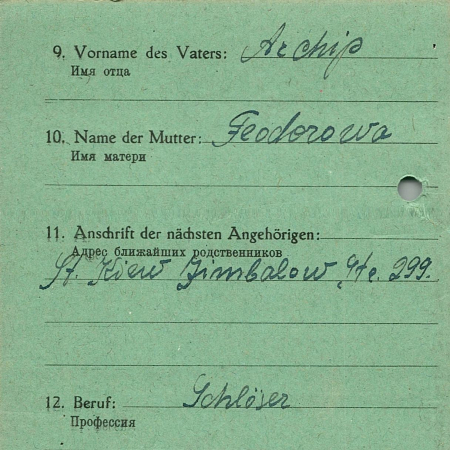 9. Vorname des Vaters: Archip
Имя отца
10. Name der Mutter: Feodorowa
Имя матери
11. Anschrift der nächsten Angehörigen:
Адрес ближайших родственников
St. Kiew Zimbalow 299.
12. Beruf: Schlöser
Профессия